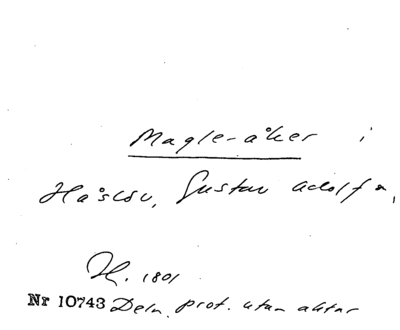 Magle-åker i
Håslöv, Gustav Adolf
H. 1801
Nr 10743 Deln. prot. utan aktnr